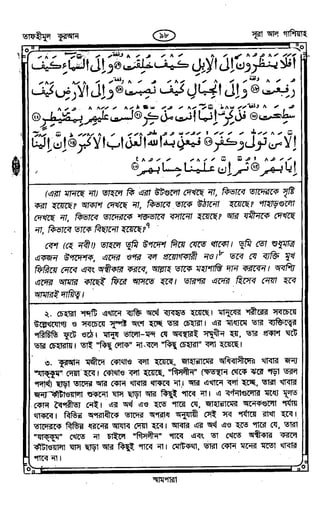 তাফহীমুল কুরআন ৯৮ সূরা আল গাশিয়াহ
أَفَلَا يَنْظُرُونَ إِلَى الْإِبِلِ كَيْفَ خُلِقَتْ ⑰ وَإِلَى السَّمَاءِ كَيْفَ
رُفِعَتْ ⑱ وَإِلَى الْجِبَالِ كَيْفَ نُصِبَتْ ⑲ وَإِلَى الْأَرْضِ كَيْفَ
سُطِحَتْ ⑳ فَذَكِّرْ إِنَّمَا أَنْتَ مُذَكِّرٌ ㉑ لَسْتَ عَلَيْهِمْ بِمُصَيْطِرٍ ㉒
إِلَّا مَنْ تَوَلَّىٰ وَكَفَرَ ㉓ فَيُعَذِّبُهُ اللَّهُ الْعَذَابَ الْأَكْبَرَ ㉔ إِنَّ إِلَيْنَا
إِيَابَهُمْ ㉕ ثُمَّ إِنَّ عَلَيْنَا حِسَابَهُمْ ㉖
(এরা মানছে না) তাহলে কি এরা উটগুলো দেখছে না, কিভাবে তাদেরকে সৃষ্টি
করা হয়েছে? আকাশ দেখছে না, কিভাবে তাকে উঠানো হয়েছে? পাহাড়গুলো
দেখছে না, কিভাবে তাদেরকে শক্তভাবে বসানো হয়েছে? আর যমীনকে দেখছে
না, কিভাবে তাকে বিছানো হয়েছে?
বেশ (হে নবী!) তাহলে তুমি উপদেশ দিয়ে যেতে থাকো। তুমি তো শুধুমাত্র
একজন উপদেশক, এদের ওপর বল প্রয়োগকারী নও। তবে যে ব্যক্তি মুখ
ফিরিয়ে নেবে এবং অস্বীকার করবে, আল্লাহ তাকে মহাশাস্তি দান করবেন। অবশ্যি
এদের আমার কাছেই ফিরে আসতে হবে। তারপর এদের হিসেব নেয়া হবে
আমারই দায়িত্ব।
২. চেহারা শব্দটি এখানে ব্যক্তি অর্থে ব্যবহৃত হয়েছে। মানুষের শরীরের সবচেয়ে
উল্লেখযোগ্য ও সবচেয়ে সুস্পষ্ট অংশ হচ্ছে তার চেহারা। এর মাধ্যমে তার ব্যক্তিত্বের
পরিচিতি ফুটে ওঠে। মানুষ ভালো-মন্দ যে অবস্থারই সম্মুখীন হয়, তার প্রকাশ ঘটে
তার চেহারায়। তাই "কিছু লোক" না বলে "কিছু চেহারা" বলা হয়েছে।
৩. কুরআন মজীদে কোথাও বলা হয়েছে, জাহান্নামের অধিবাসীদের খাবার জন্য
"যাক্কুম" দেয়া হবে। কোথাও বলা হয়েছে, "গিসলীন" (ক্ষতস্থান থেকে ঝরে পড়া তরল
পদার্থ) ছাড়া তাদের আর কোন খাবার থাকবে না। আর এখানে বলা হচ্ছে, তারা খাবার
জন্য কাঁটাওয়ালা শুকনো ঘাস ছাড়া আর কিছুই পাবে না। এ বর্ণনাগুলোর মধ্যে মূলত
কোন বৈপরীত্য নেই। এর অর্থ এও হতে পারে যে, জাহান্নামের অনেকগুলো পর্যায়
থাকবে। বিভিন্ন অপরাধীকে তাদের অপরাধ অনুযায়ী সেই সব পর্যায়ে রাখা হবে।
তাদেরকে বিভিন্ন ধরনের আযাব দেয়া হবে। আবার এর অর্থ এও হতে পারে যে, তারা
"যাক্কুম" খেতে না চাইলে "গিসলীন" পাবে এবং তা খেতে অস্বীকার করলে
কাঁটাওয়ালা ঘাস ছাড়া আর কিছুই পাবে না। মোটকথা, তারা কোন মনের মতো খাবার
পাবে না।
আমপারা